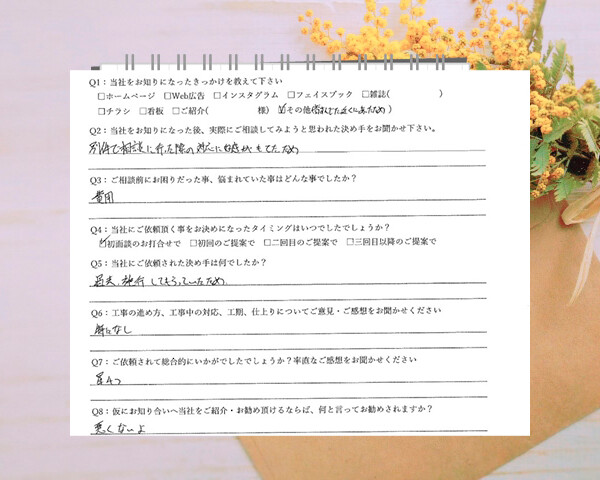 Q1：当社をお知りになったきっかけを教えて下さい
□ホームページ □Web広告 □インスタグラム □フェイスブック □雑誌( )
□チラシ □看板 □ご紹介( 様) ☑その他( )
Q2：当社をお知りになった後、実際にご相談してみようと思われた決め手をお聞かせ下さい。
別件で相談に行った際の対応に好感がもてたため
Q3：ご相談前にお困りだった事、悩まれていた事はどんな事でしたか？
費用
Q4：当社にご依頼頂く事をお決めになったタイミングはいつでしたでしょうか？
☑初面談のお打合せで □初回のご提案で □二回目のご提案で □三回目以降のご提案で
Q5：当社にご依頼された決め手は何でしたか？
施行してもらっていたため
Q6：工事の進め方、工事中の対応、工期、仕上りについてご意見・ご感想をお聞かせください
特になし
Q7：ご依頼されて総合的にいかがでしたでしょうか？率直なご感想をお聞かせください
星4つ
Q8：仮にお知り合いへ当社をご紹介・お勧め頂けるならば、何と言ってお勧めされますか？
悪くないよ